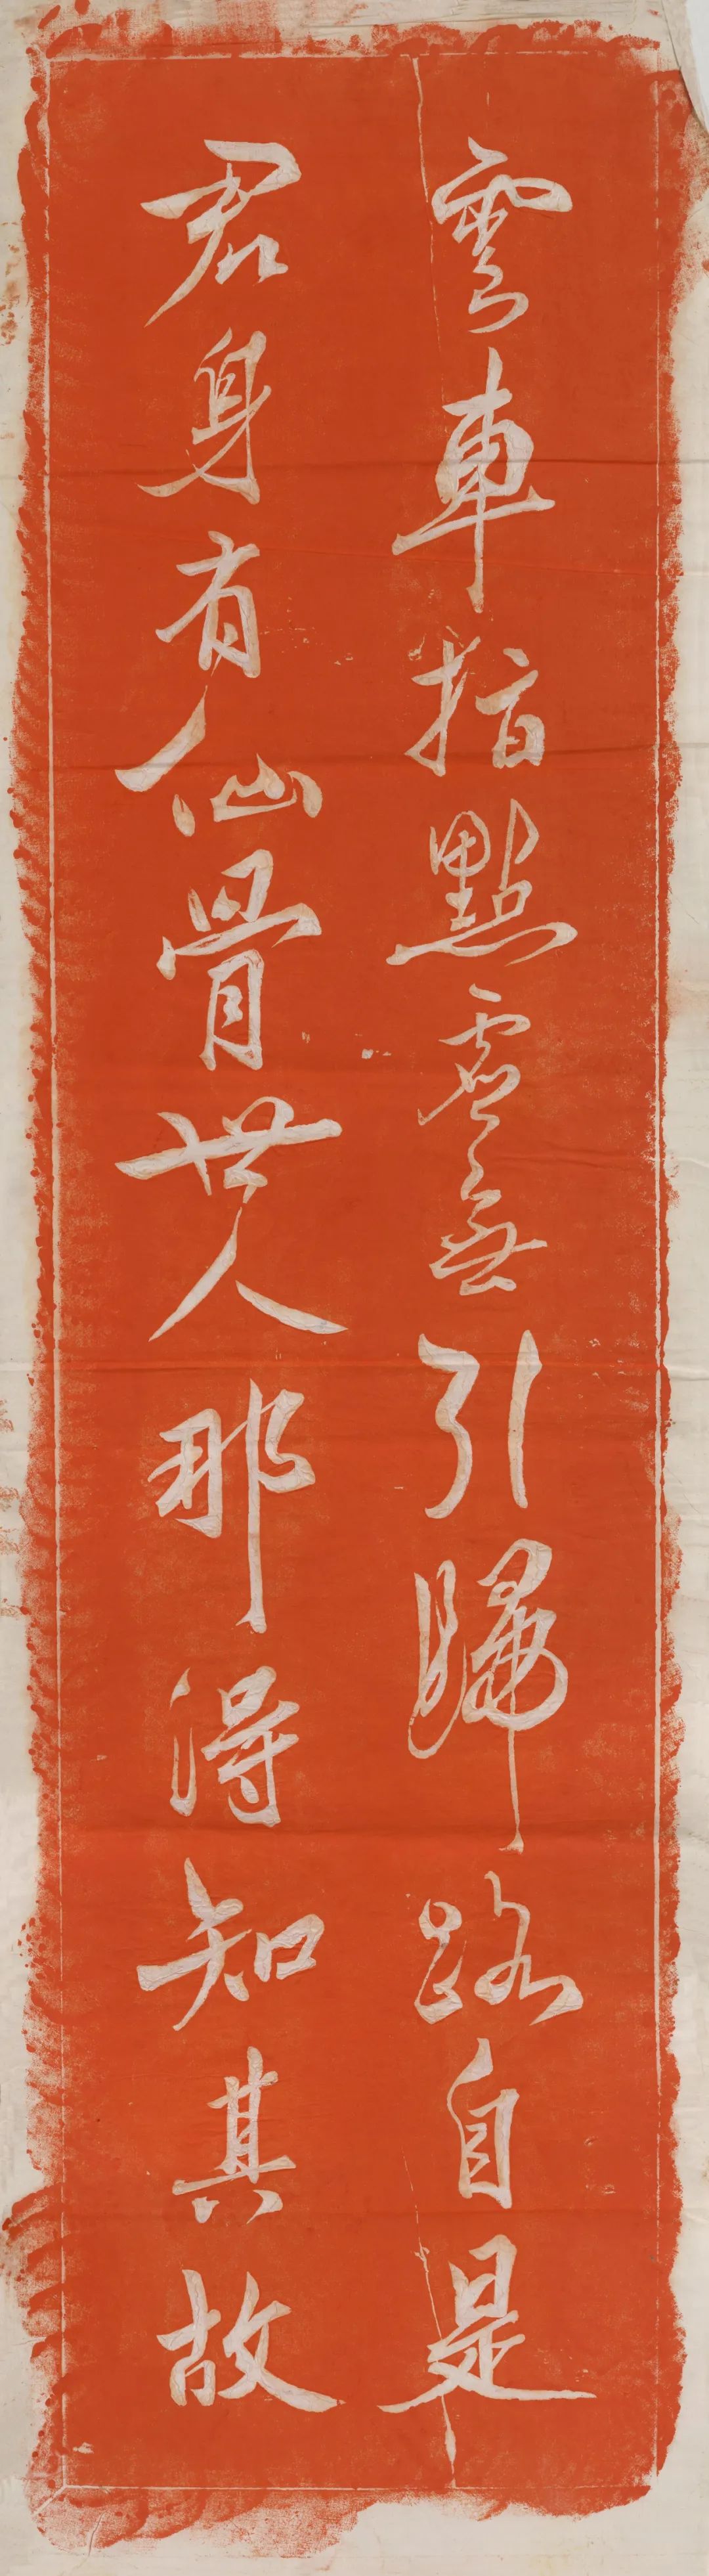 雲車指點虛無引歸路自是
君身有仙骨世人那得知其故